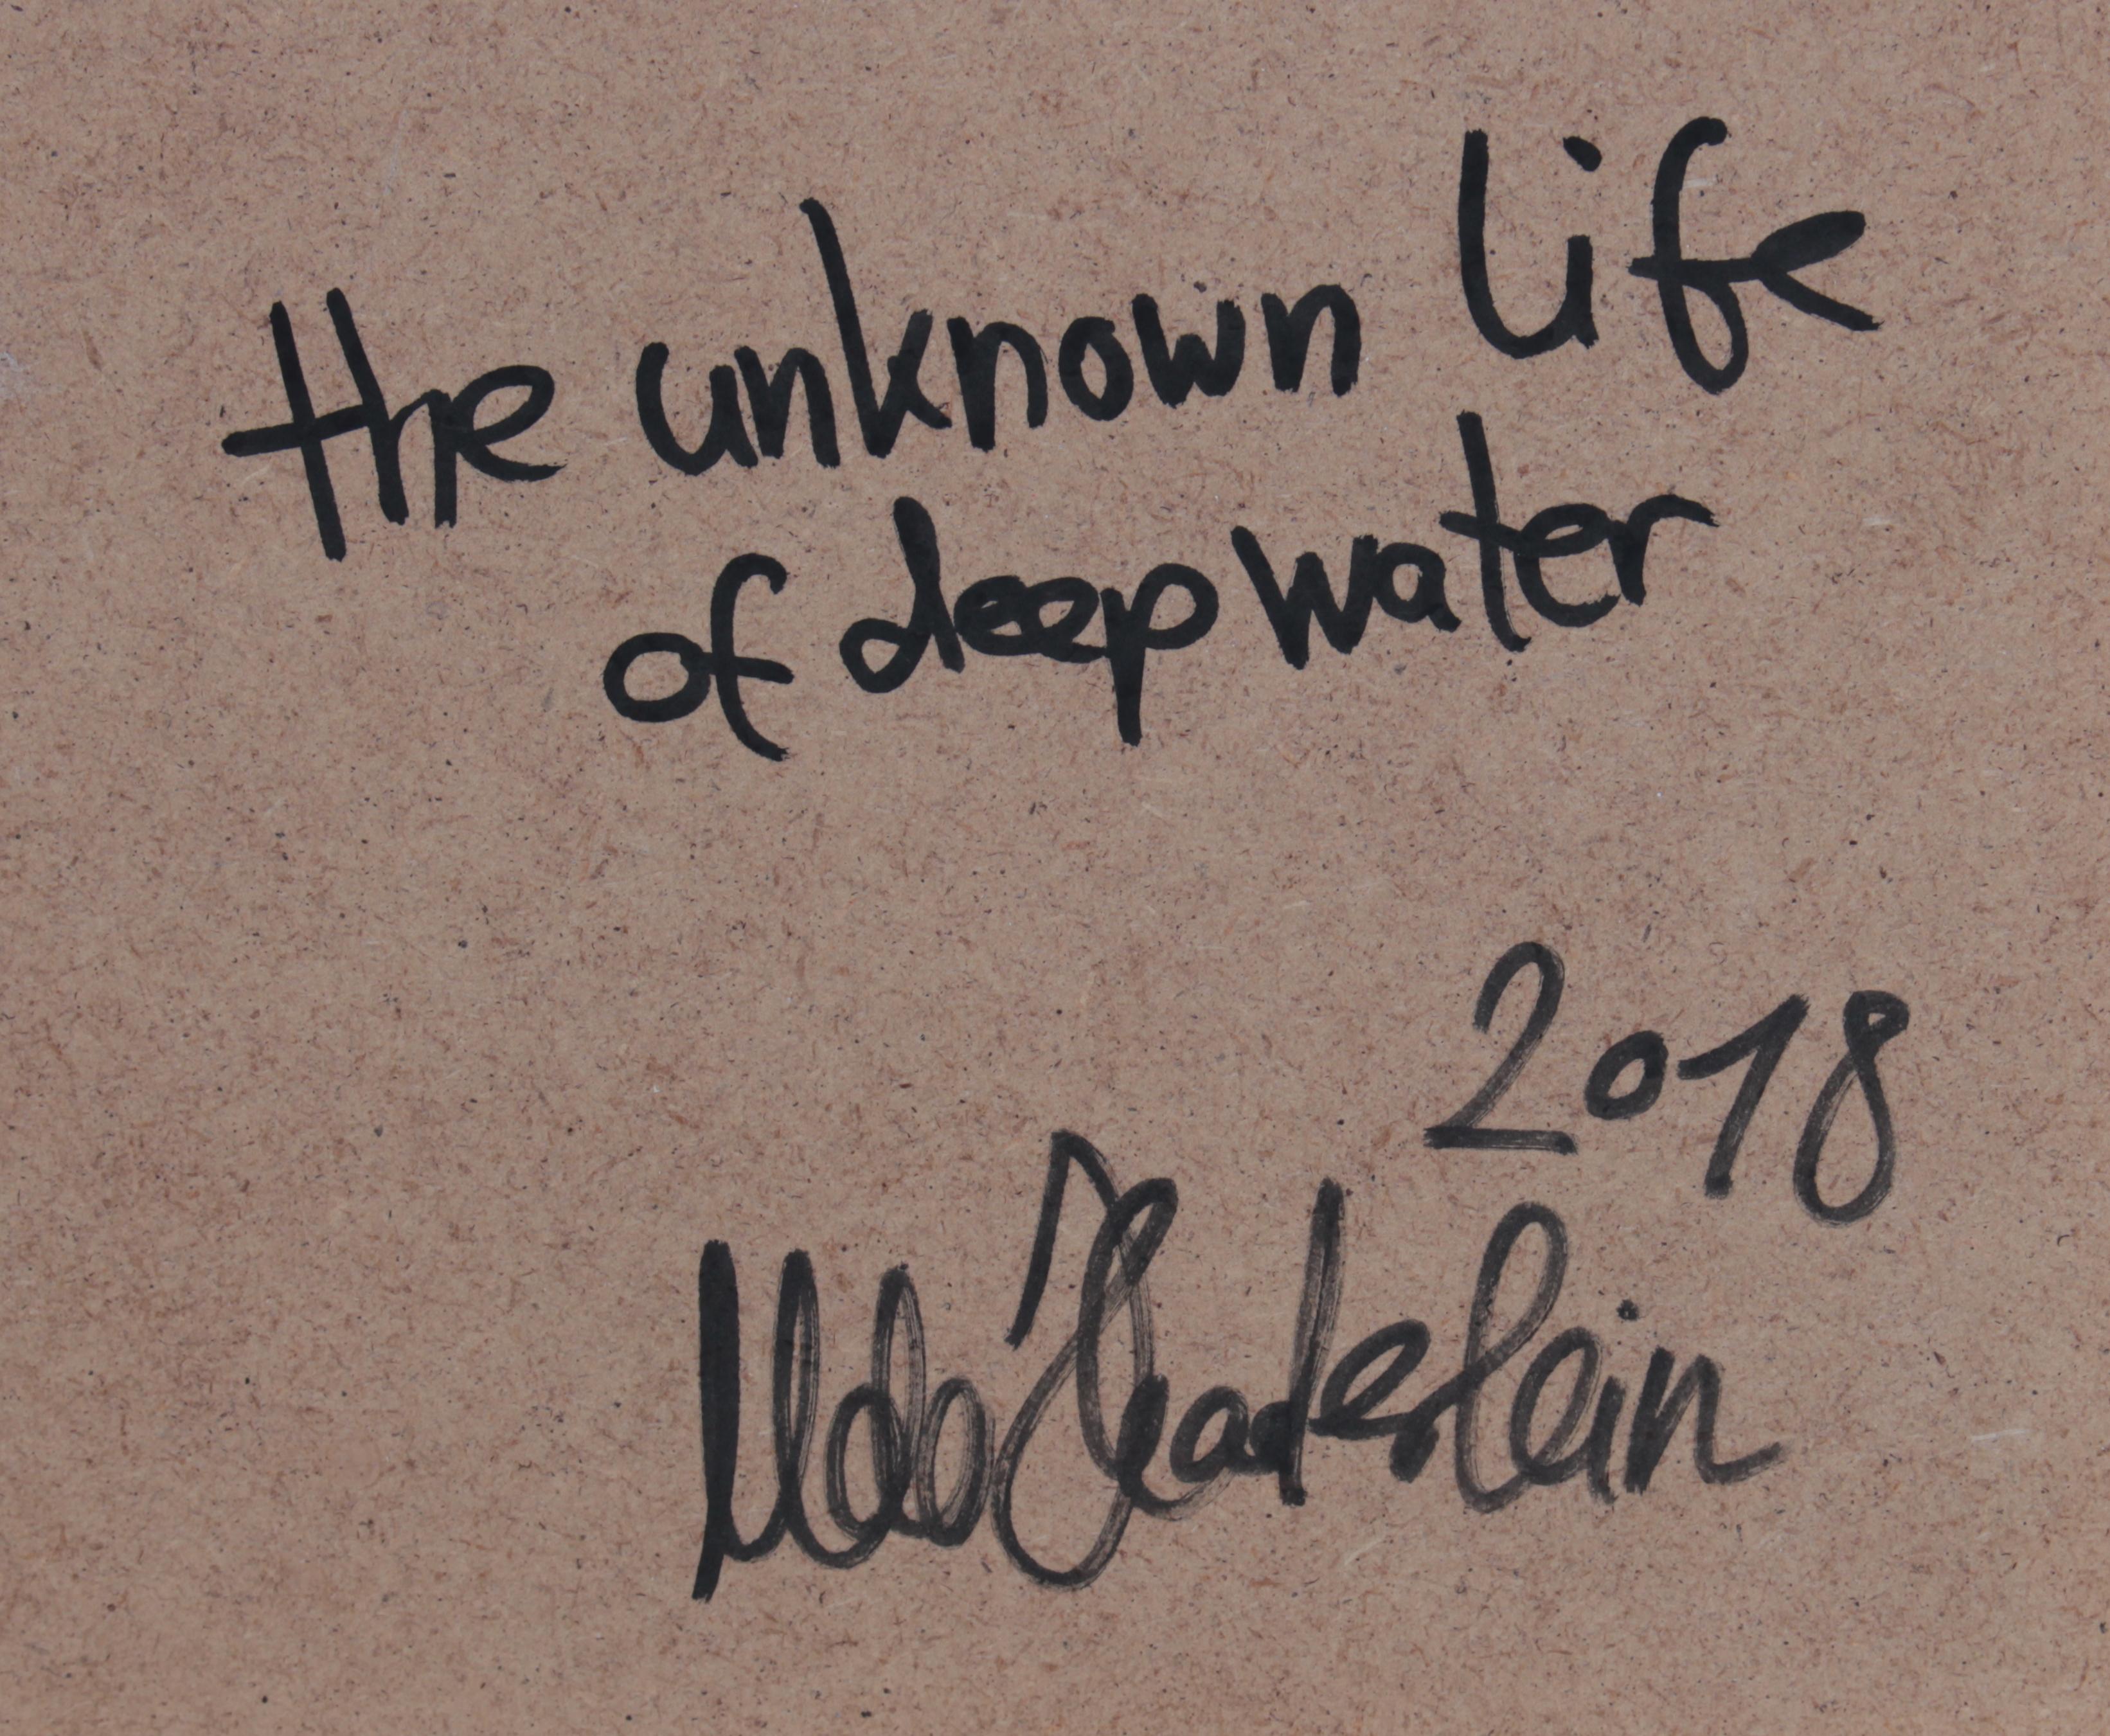 the unknown life
of deep water
2018
Udo Haderlein